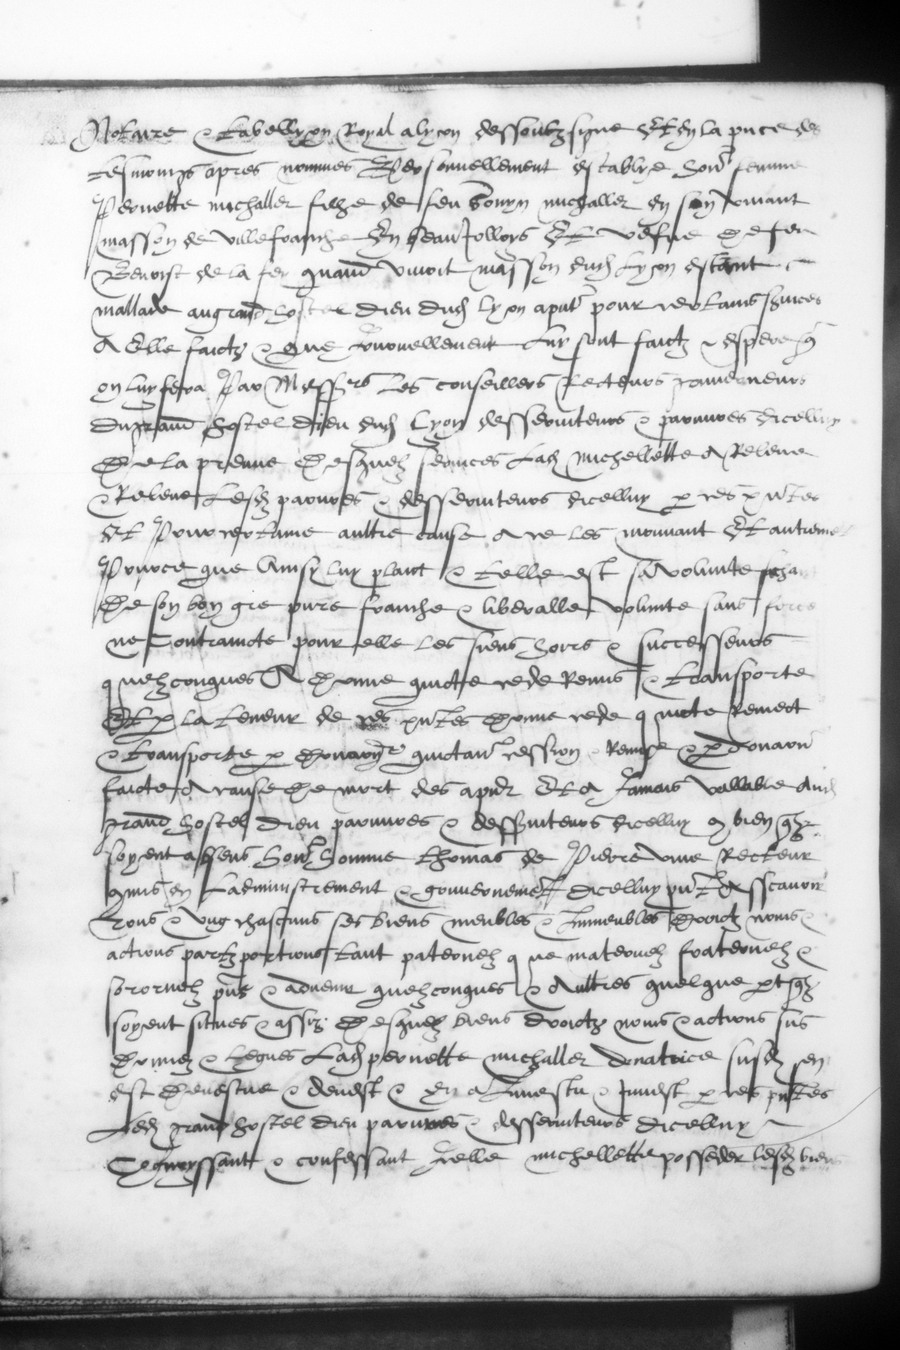 Notaire & tabellyon Royal a lyon dessoubz signe Et en la pnce des
tesmoings apres nommes Personnellement establye hon femme
Pernette michallet filhe de feu bonyn michallet en son vivant
masson de villefranche En beaujolloys Et vefve de feu
Benoist de la fey quand vivoit masson dud Lyon estant
mallade au grand hostel dieu dud lyon pour certains services
A Elle faictz & que Journellement luy sont faictz & espere q
on luy fera Par Messrs Les conseillers Recteurs gouverneurs
du grand hostel dieu dud Lyon desserviteurs & pauvres dicelluy
De la preuve Desquelz services Lad michellette A Releve
& Releve Lesd pauvres & desserviteurs dicelluy p ces pntes
Et Pour certaine aultre cause A ce les mouvant Et autrement
Pource que Ainsy luy plaict & telle est sa volunte
De son bon gre pure franche & liberalle volunte sans force
ne Contraincte pour elle les siens hoirs & successeurs
quelzconques A Donne quicte cede Remis & transporte
Et p la teneur de ces pntes Donne cede quicte Remect
& transporte p quictance cession Remise & p donaon
faicte A cause de mort des A Jamais vallable Aud
grand hostel dieu pauvres & desserviteurs dicelluy
soyent absens hon homme thomas de Pierre vive Recteur
comis en Ladministrement & gouvernement dicelluy pnt Asscavoir
Tous & ung chascuns ses biens meubles & Immeubles Droictz noms &
actions partz portions tant paternelz que maternelz fraternelz &
sorornelz pns & advenir quelzconques & Aultres quelque part q
soyent situes & assiz Desquelz biens droictz noms & actions sus
Donnez & Legues Lad pernette michallet donatrice susd sen
est Devestue & devest & En a Investu & Invest p ces pntes
Led grand hostel dieu pauvres & desserviteurs dicelluy
Cognoyssant & confessant Icelle michellette posseder lesd biens